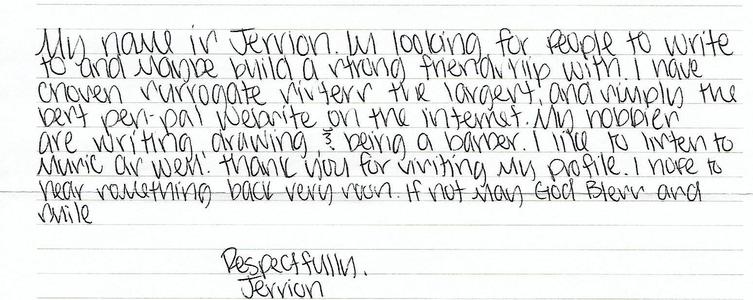 My name is Jerrion. Im looking for people to write
to and maybe build a strong friendship with. I have
chosen surrogate sisters the largest, and simply the
best pen-pal website on the internet. My hobbies
are writing, drawing, & being a barber. I like to listen to
Music as well. Thank you for visiting my profile. I hope to
hear something back very soon. If not May God Bless and
smile
Respectfully,
Jerrion